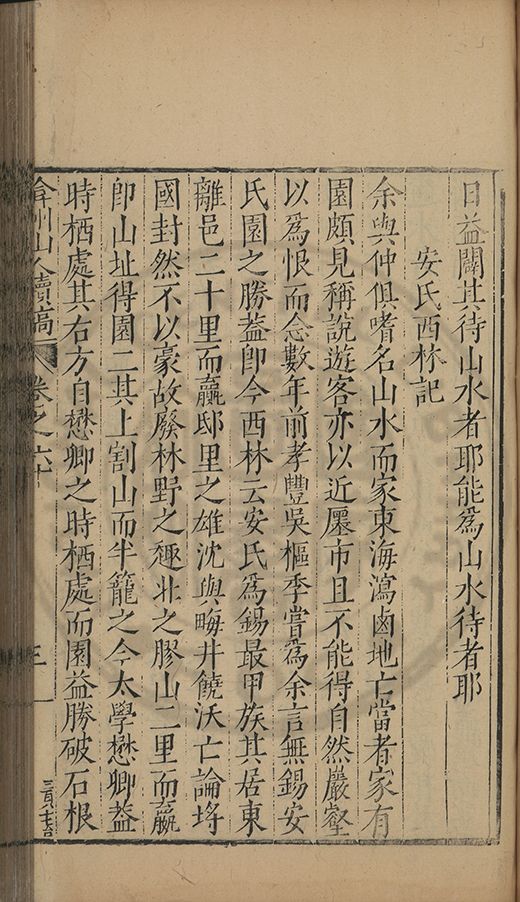 日益闢其待山水者耶能爲山水待者耶
安氏西林記
余與仲俱嗜名山水而家東海瀉鹵地亡當者家有
園頗見稱說遊客亦以近廛市且不能得自然巖壑
以爲恨而念數年前孝豐吳樞季嘗爲余言無錫安
氏園之勝葢卽今西林云安氏爲錫最甲族其居東
離邑二十里而贏邸里之雄沈與畮井饒沃亡論埓
國封然不以豪故廢林野之趣北之膠山二里而贏
卽山址得園二其上割山而半籠之今太學懋卿葢
時栖處其右方自懋卿之時栖處而園益勝破石根
弇州山人續稿 卷之六十 三